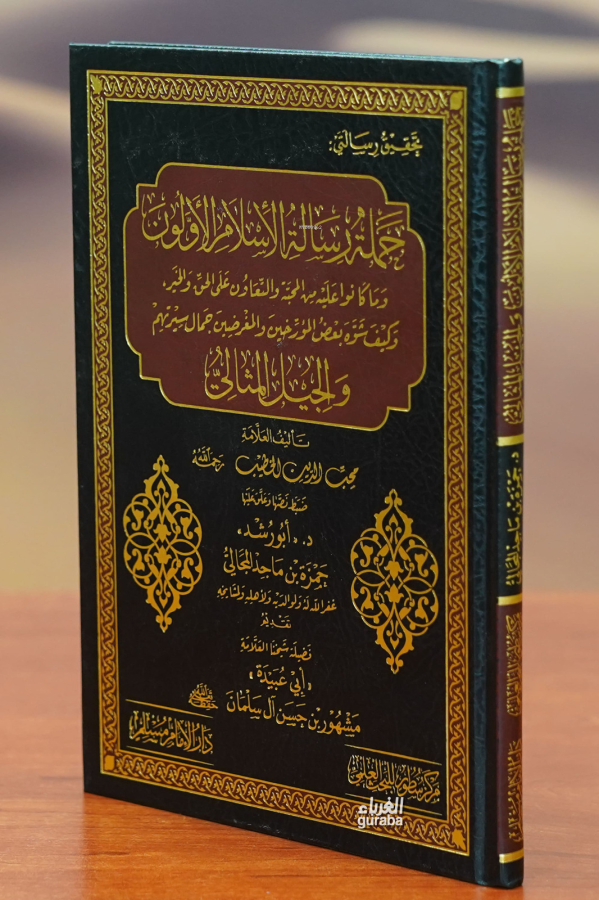 تحقيق رسالتي:
حملة رسالة الإسلام الأولون
وما كانوا عليه من المحبة والتعاون على الحق والخير،
وكيف شوه بعض المؤرخين والمغرضين جمال سيرتهم
والجيل المثالي
تأليف العلامة
محب الدين الخطيب رحمه الله
ضبط نصها وعلق عليها
د. «أبو رشد»
حمزة بن ماجد المجالي
غفر الله له ولوالديه ولأهله ولمشايخه
تقديم
فضيلة شيخنا العلامة
«أبي عبيدة»
مشهور بن حسن آل سلمان حفظه الله
دار الإمام مسلم
مركز سطور للبحث العلمي
الغرباء
guraba